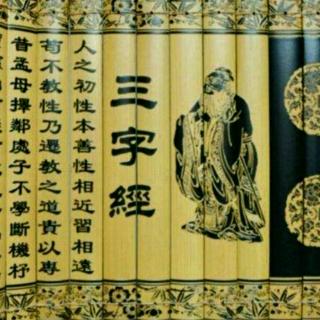 三字經
人之初性本善性相近習相遠
苟不教性乃遷教之道貴以專
昔孟母擇鄰處子不學斷機杼